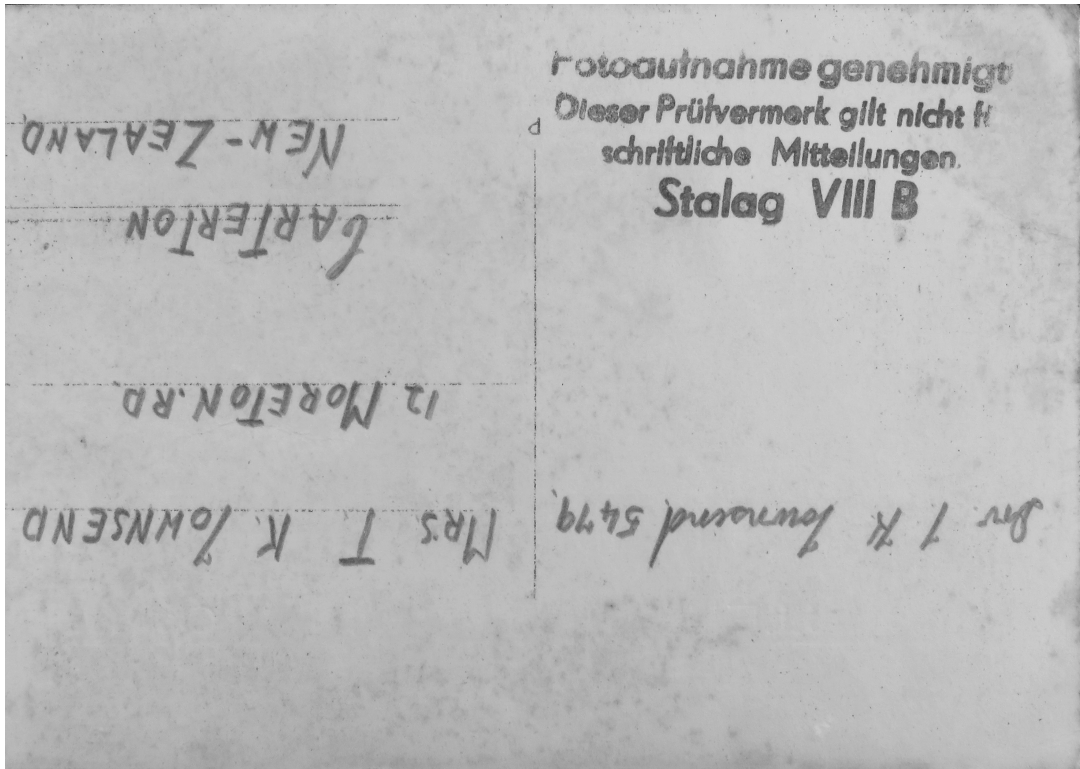 Fotoaufnahme genehmigt
Dieser Prüfvermerk gilt nicht
schriftliche Mitteilungen.
Stalag VIII B
Dvr T K Townsend 5479.
MRS T. K. TOWNSEND
12 MORETON.RD.
CARTERTON
NEW-ZEALAND